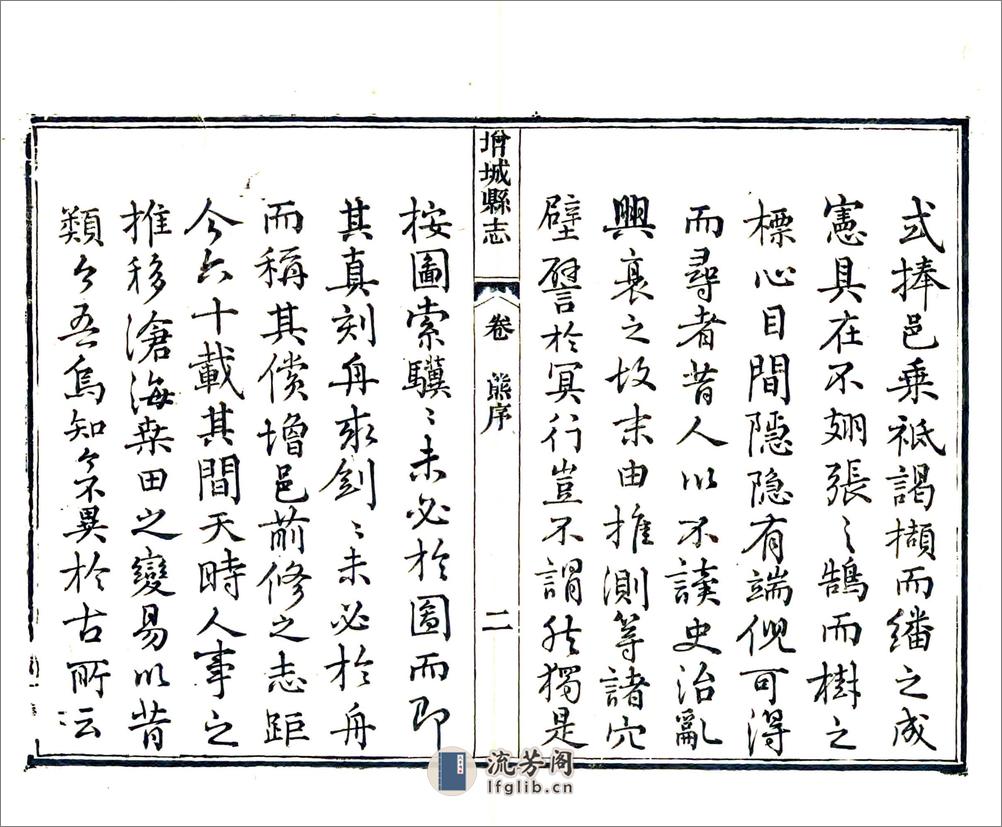 式捧邑乗祗謁擷而繙之成
憲具在不翅張之鵠而樹之
標心目間隱隱有端倪可得
而尋者昔人以不讀史治亂
興衰之故末由推測等諸穴
壁譬於冥行豈不謂然獨是
增城縣志
卷 熊序
二
按圖索驥〻未必於圖而即
其真刻舟求劍〻未必於舟
而稱其償增邑前修之志距
今六十載其間天時人事之
推移滄海桑田之變易以昔
類今吾烏知今不異於古所云
流芳阁
lfglib.cn